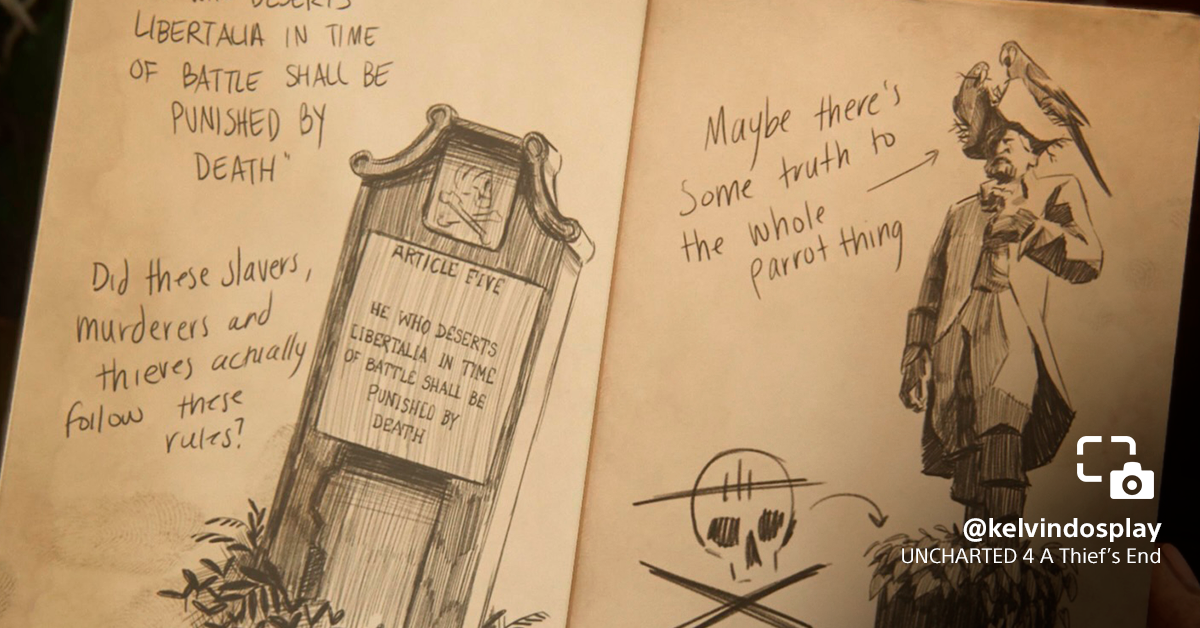 DESERTS
LIBERTALIA IN TIME
OF BATTLE SHALL BE
PUNISHED BY
DEATH"
Did these slavers,
murderers and
thieves actually
follow these
rules?
ARTICLE FIVE
HE WHO DESERTS
LIBERTALIA IN TIME
OF BATTLE SHALL BE
PUNISHED BY
DEATH
Maybe there's
some truth to
the whole
parrot thing
@kelvindosplay
UNCHARTED 4 A Thief's End